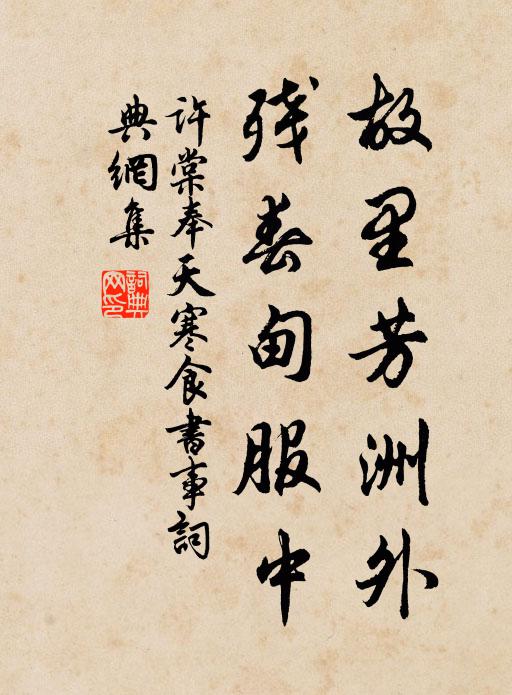 故里芳洲外
残春甸服中
许棠奉天寒食書事詞
典網集
詞典
网印